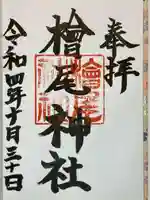 奉拝
檜尾神社
令和四年十月三十日